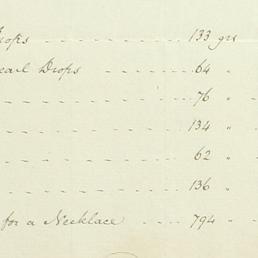 Drops - - - - - - - - - 133 grs
earl Drops - - - - - - 64 "
- - - - - - - - - - - - 76 "
- - - - - - - - - - - - 134 "
- - - - - - - - - - - - 62 "
- - - - - - - - - - - - 136 "
for a Necklace - - - - 794 "